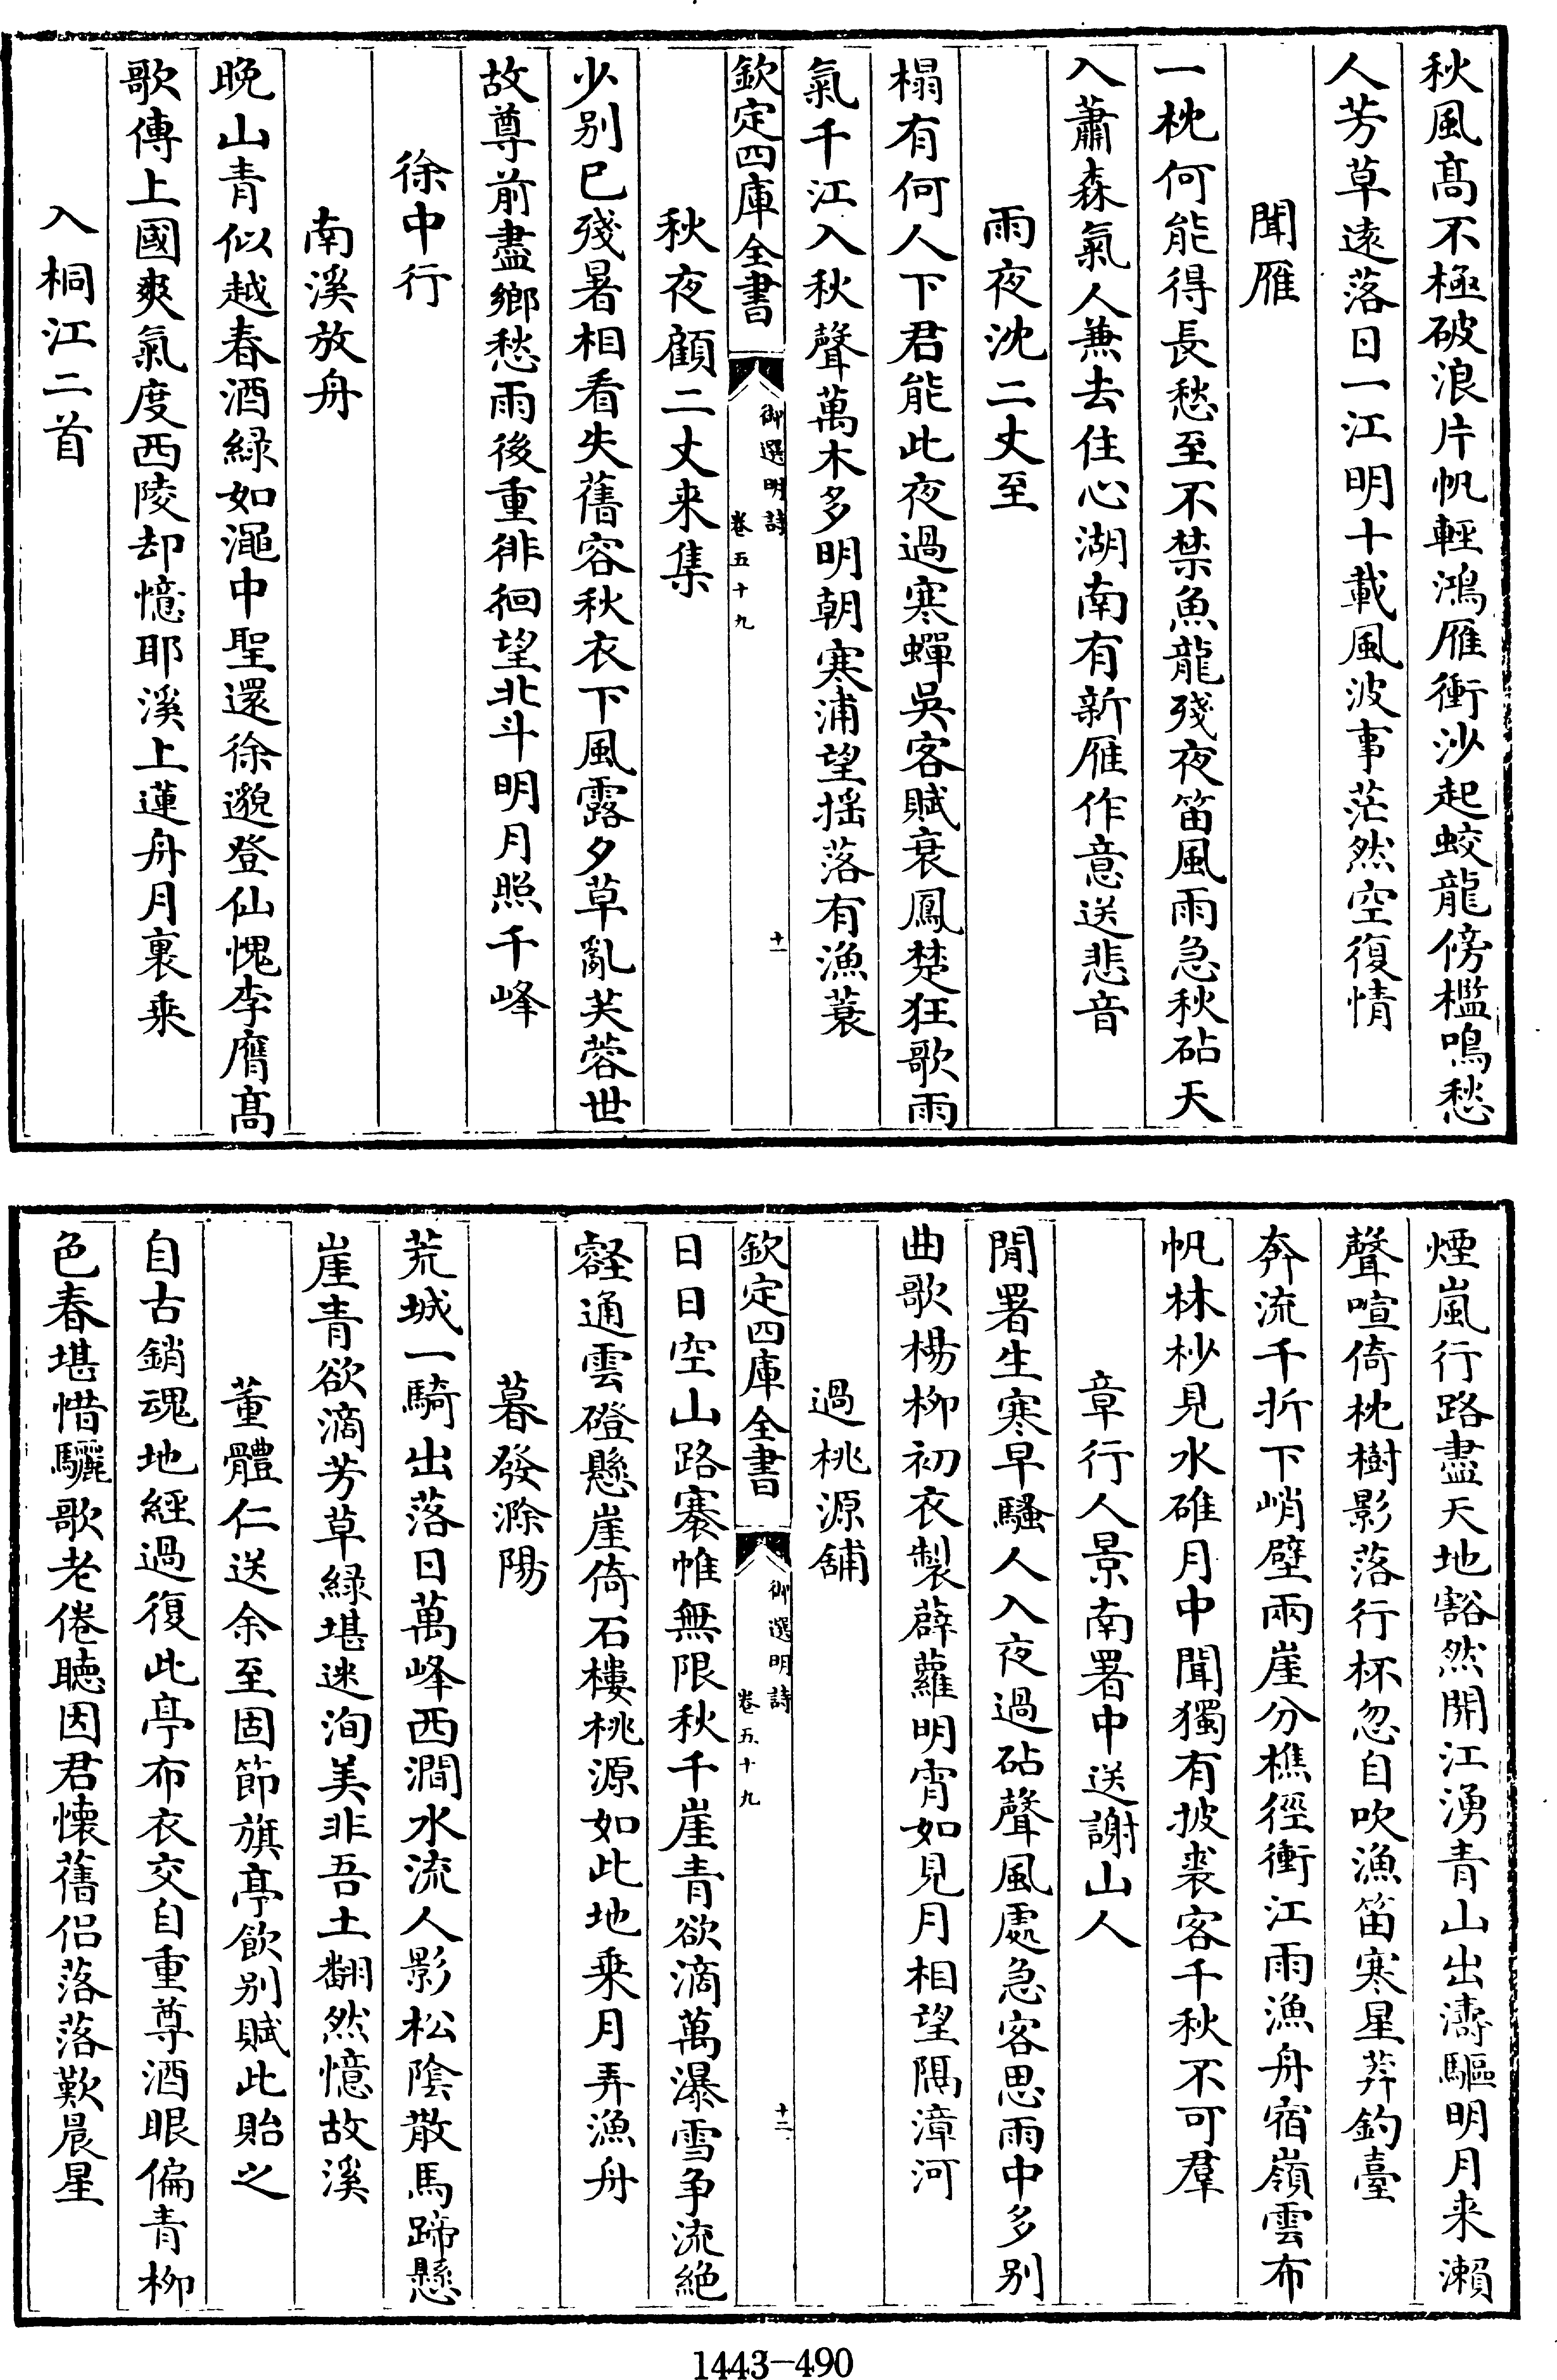 秋風髙不極破浪片帆輕鴻雁衝沙起蛟龍傍檻鳴愁
人芳草遠落日一江明十載風波事茫然空復情
聞雁
一枕何能得長愁至不禁魚龍殘夜笛風雨急秋砧天
入蕭森氣人兼去住心湖南有新雁作意送悲音
雨夜沈二丈至
榻有何人下君能此夜過寒蟬吳客賦衰鳳楚狂歌雨
氣千江入秋聲萬木多明朝寒浦望揺落有漁蓑
欽定四庫全書
御選明詩
卷五十九
十一
秋夜顧二丈来集
少别已殘暑相看失舊容秋衣下風露夕草亂芙蓉世
故尊前盡鄉愁雨後重徘徊望北斗明月照千峰
徐中行
南溪放舟
晚山青似越春酒緑如澠中聖還徐邈登仙愧李膺髙
歌傳上國爽氣度西陵却憶耶溪上蓮舟月裏乗
入桐江二首
煙嵐行路盡天地豁然開江湧青山出濤驅明月来瀨
聲喧倚枕樹影落行杯忽自吹漁笛寒星莽釣臺
奔流千折下峭壁兩崖分樵徑衝江雨漁舟宿嶺雲布
帆林杪見水碓月中聞獨有披裘客千秋不可羣
章行人景南署中送謝山人
閒署生寒早騷人入夜過砧聲風處急客思雨中多别
曲歌楊柳初衣製薜蘿明宵如見月相望隔漳河
過桃源舖
欽定四庫全書
御選明詩
卷五十九
十二
日日空山路褰帷無限秋千崖青欲滴萬瀑雪争流絶
壑通雲磴懸崖倚石樓桃源如此地乗月弄漁舟
暮發滁陽
荒城一騎出落日萬峰西澗水流人影松陰散馬蹄懸
崖青欲滴芳草緑堪迷洵美非吾土翻然憶故溪
董體仁送余至固節旗亭飲别賦此貽之
自古銷魂地經過復此亭布衣交自重尊酒眼偏青柳
色春堪惜驪歌老倦聴因君懐舊侣落落歎晨星
1443-490